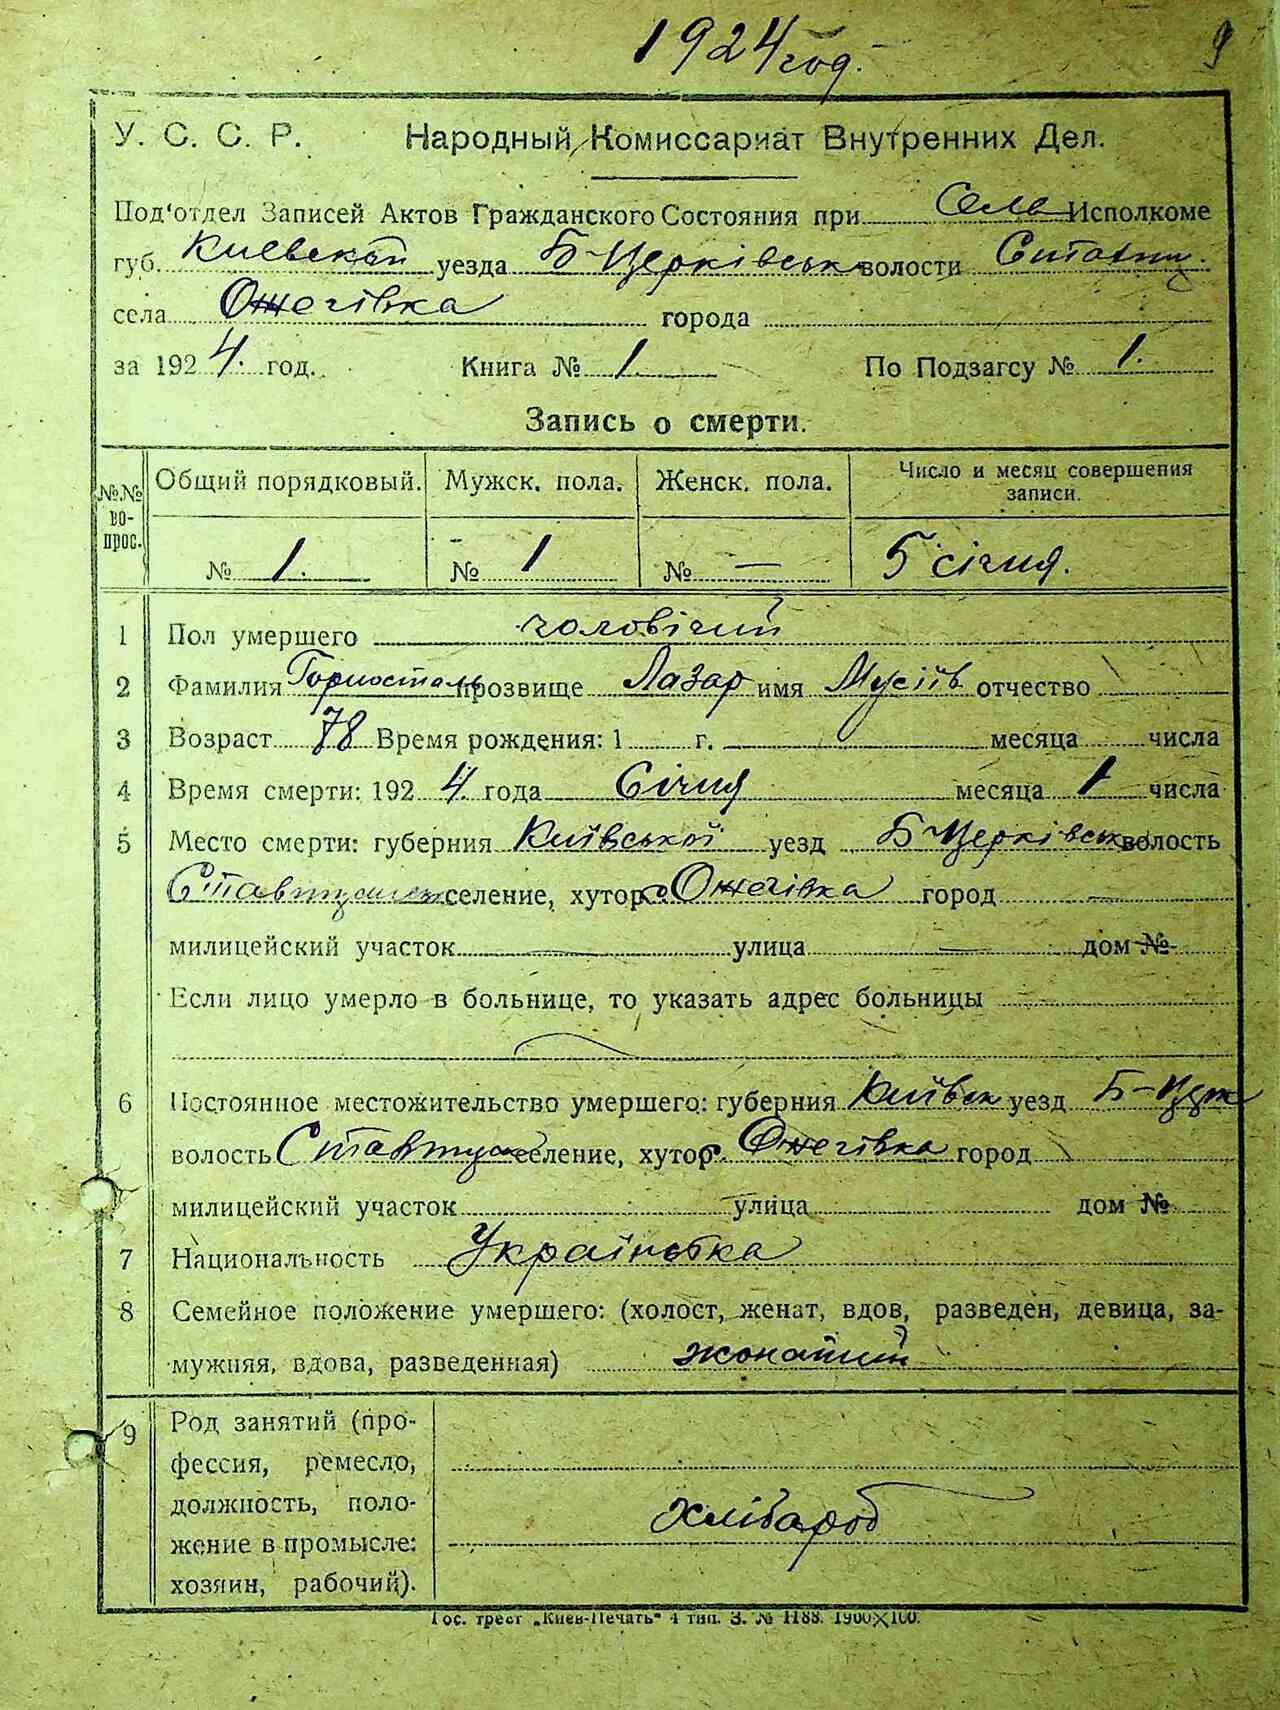 1924 год.
9
У. С. С. Р. Народный Комиссариат Внутренних Дел.
Под'отдел Записей Актов Гражданского Состояния при Сель Исполкоме
губ. Киевской уезда Б-Церківськ волости
села Ожегівка города
за 1924. год. Книга № 1 По Подзагсу № 1.
Запись о смерти.
№№ вопрос. Общий порядковый. Мужск. пола. Женск. пола. Число и месяц совершения записи.
№ 1. № 1 № — 5 січня.
1 Пол умершего чоловічий
2 Фамилия Горносталь прозвище Лазар имя Мусіїв отчество
3 Возраст 78 Время рождения: 1 г. месяца числа
4 Время смерти: 1924 года Січня месяца 1 числа
5 Место смерти: губерния Київської уезд Б-Церківськ волость
селение, хутор с. Ожегівка город —
милицейский участок — улица — дом №
Если лицо умерло в больнице, то указать адрес больницы
6 Постоянное местожительство умершего: губерния Київськ уезд
волость селение, хутор с. Ожегівка город
милицейский участок улица дом №
7 Национальность Українська
8 Семейное положение умершего: (холост, женат, вдов, разведен, девица, за-
мужняя, вдова, разведенная) жонатий
9 Род занятий (про-
фессия, ремесло,
должность, поло-
жение в промысле:
хозяин, рабочий).
Хлібароб
Гос. трест „Киев-Печать" 4 тип. З. № 1188. 1900×100.